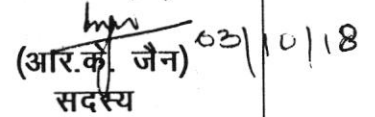 (आर.के. जैन) 03/10/18
सदस्य